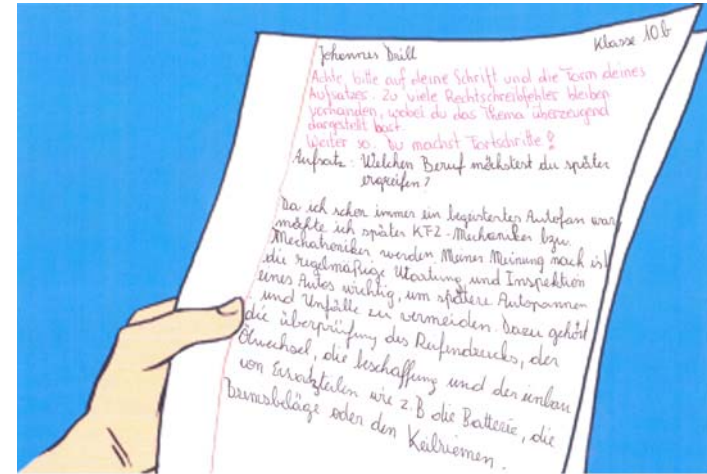 Johannes Drill
Klasse 10b
Achte, bitte auf deine Schrift und die Form deines
Aufsatzes. Zu viele Rechtschreibfehler bleiben
vorhanden, wobei du das Thema überzeugend
dargestellt hast.
Weiter so. Du machst Fortschritte!
Aufsatz: Welchen Beruf möchtest du später
ergreifen?
Da ich schon immer ein begeisterter Autofan war,
möchte ich später KFZ-Mechaniker bzw.
Mechatroniker werden. Meiner Meinung nach ist
die regelmäßige Wartung und Inspektion
eines Autos wichtig, um spätere Autopannen
und Unfälle zu vermeiden. Dazu gehört
die überprüfung des Reifendrucks, der
Ölwechsel, die beschaffung und der einbau
von Ersatzteilen wie z.B die Batterie, die
Bremsbeläge oder den Keilriemen.